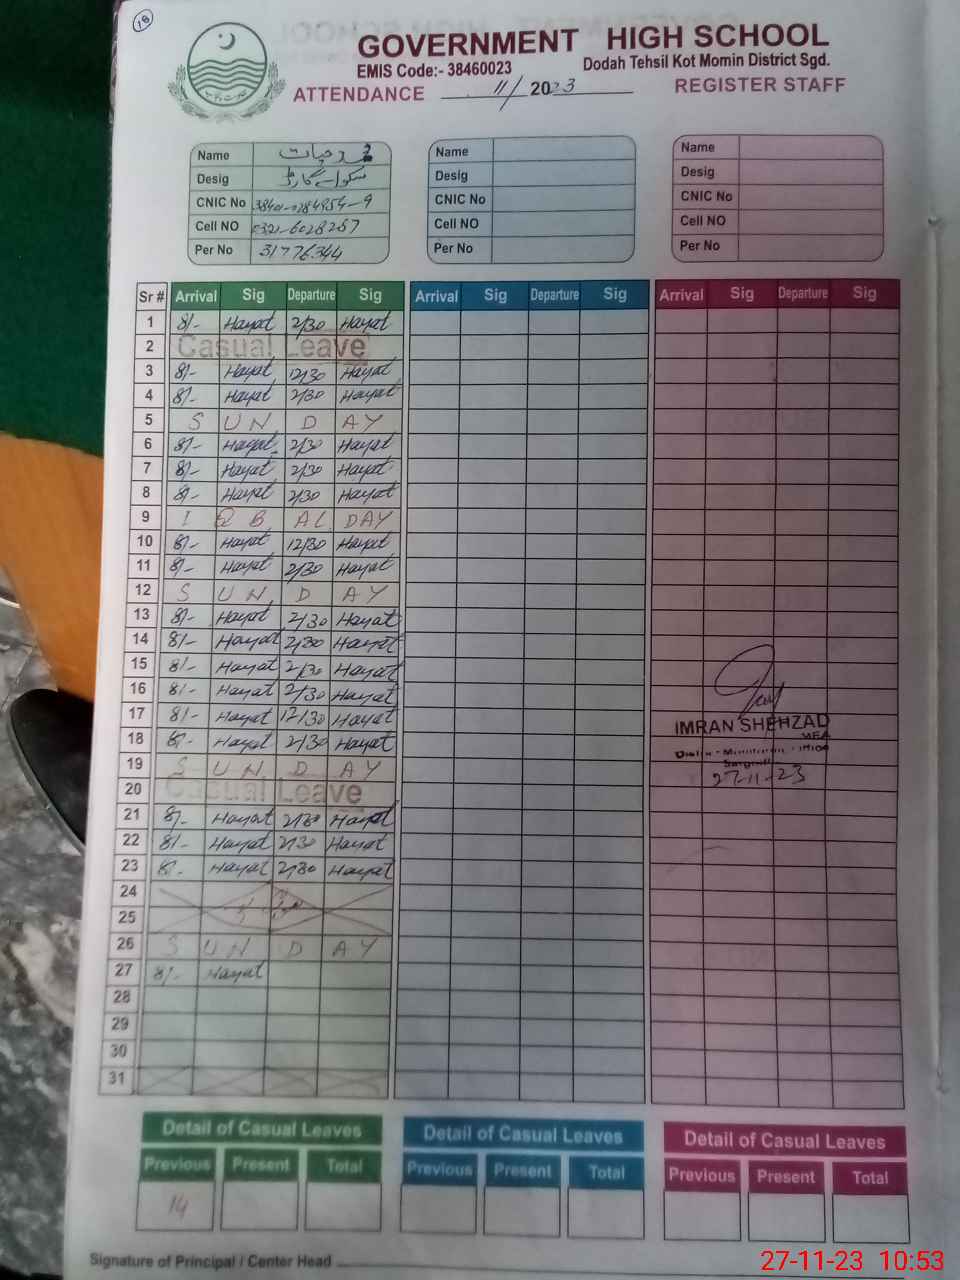 18
GOVERNMENT HIGH SCHOOL
EMIS Code:- 38460023 Dodah Tehsil Kot Momin District Sgd.
ATTENDANCE 11/ 2023 REGISTER STAFF
Name محمد حیات Name Name
Desig سکول گارڈ Desig Desig
CNIC No 38401-0284954-9 CNIC No CNIC No
Cell NO 0321-6028257 Cell NO Cell NO
Per No 31776344 Per No Per No
Sr # Arrival Sig Departure Sig Arrival Sig Departure Sig Arrival Sig Departure Sig
1 8/- Hayat 2/30 Hayat
2 Casual Leave
3 8/- Hayat 12/30 Hayat
4 8/- Hayat 2/30 Hayat
5 S U N D AY
6 8/- Hayat 2/30 Hayat
7 8/- Hayat 2/30 Hayat
8 8/- Hayat 2/30 Hayat
9 I Q B AL DAY
10 8/- Hayat 12/30 Hayat
11 8/- Hayat 2/30 Hayat
12 S U N D A Y
13 8/- Hayat 2/30 Hayat
14 8/- Hayat 2/30 Hayat
15 8/- Hayat 2/30 Hayat
16 8/- Hayat 2/30 Hayat
17 8/- Hayat 12/30 Hayat
18 8/- Hayat 2/30 Hayat
19 S U N D A Y
20 Casual Leave
21 8/- Hayat 2/30 Hayat
22 8/- Hayat 2/30 Hayat
23 8/- Hayat 2/30 Hayat
24
25
26 S U N D A Y
27 8/- Hayat
28
29
30
31
IMRAN SHEHZAD
MEA
27-11-23
Detail of Casual Leaves Detail of Casual Leaves Detail of Casual Leaves
Previous Present Total Previous Present Total Previous Present Total
14
Signature of Principal / Center Head
27-11-23 10:53